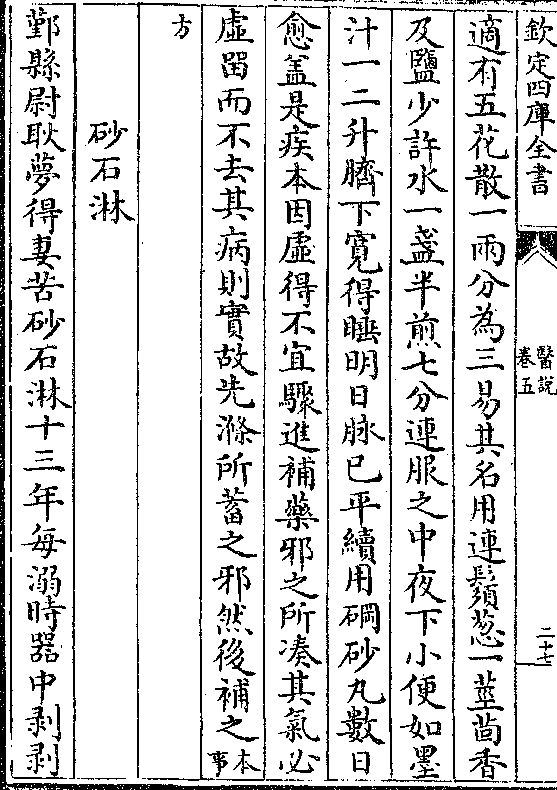 欽定四庫全書
醫説
卷五
二十七
適有五花散一兩分為三易其名用連鬚葱一莖茴香
及鹽少許水一盞半煎七分連服之中夜下小便如墨
汁一二升臍下寛得睡明日脉已平續用碙砂丸數日
愈盖是疾本因虛得不宜驟進補藥邪之所凑其氣必
虛留而不去其病則實故先滌所蓄之邪然後補之本事
方
砂石淋
鄞縣尉耿夢得妻苦砂石淋十三年每溺時器中剥剥